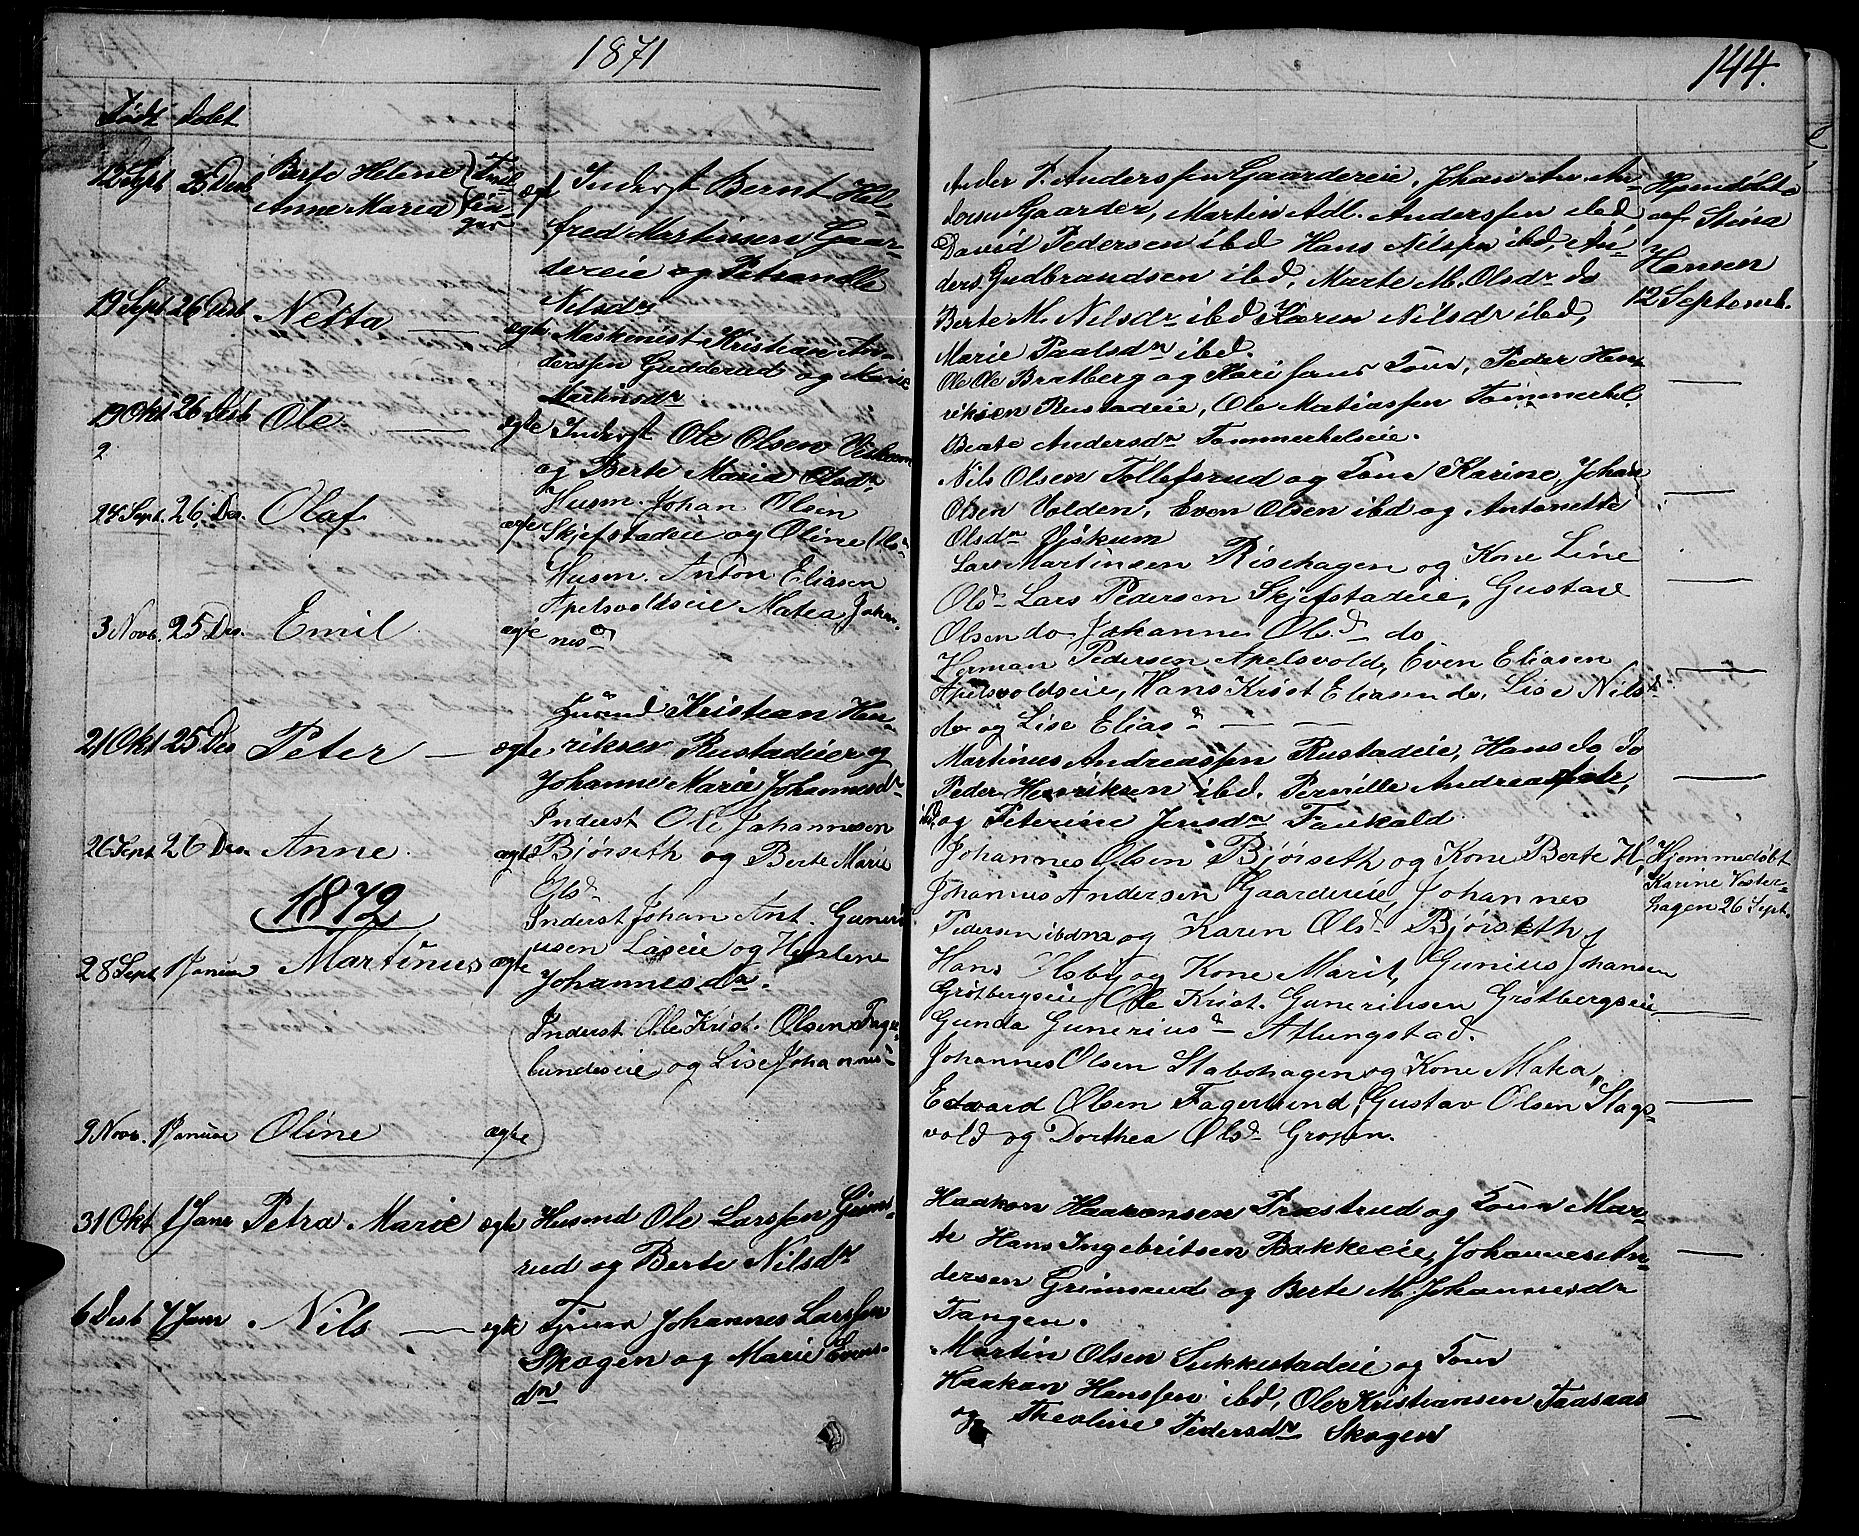 1871
Født Døbt
12 Sept 25 Desb Berte Helene Tvil ægt Inderst Bernt Hel-
Anne Maria lin- fred Martinsen Gaar-
ger dereie og Petronelle
Nilsdr
19 Sept 26 Desb Netta — ægte Maskinist Kristian An-
derssen Gudderud og Marie
Martinsdr
19 Okt 26 Desb Ole — ægte Inderst Ole Olsen
2 og Berte Maria Olsdr
24 Sept. 26 Des. Olaf ægte Husm. Johan Olsen
Skjefstadeie og Oline Ols-
3 Novb. 25 Des. Emil ægte Husm. Anton Eliasen
Apelsvoldseie Matea Johan-
nesd
21 Okt 25 Des Peter — ægte Kristian Hen-
riksen Rustadeie og
Johanne Marie Johannesdr
26 Sept 26 Des. Anne ægte Inderst Ole Johannesen
Bjørseth og Berte Marie
Olsd
1872
28 Sept 1 Januar Martinus ægte Inderst Johan Ant. Guneri-
usen Laseie og Helene
Johannesdr.
9 Novb. 1 Januar Oline ægte Inderst Ole Krist. Olsen Fager-
lundseie og Lise Johannesd
31 Okt 1 Janr Petra Marie ægte Husmd Ole Larssen Grims-
rud og Berte Nilsdr
6 Desb 7 Janr Nils — ægte Johannes Larssen
Skogen og Marie Evens-
dr
144.
Ander P. Anderssen Gaardereie, Johan An. An-
dersen Gaarder, Martin Adl. Anderssen ibd
David Pedersen ibd Hans Nilssen ibd, An-
ders Gudbrandsen ibd, Marte M. Olsdr do
Berte M. Nilsdr ibd Karen Nilsdr ibd,
Marie Paalsdr ibd.
Hjemdøbt
af Stina
Hansen
12 Septemb.
Ole Ole Bratberg og Kari hans Kone, Peder Hen-
riksen Rustadeie, Ole Matiassen
Beate Andersdr
—
Nils Olsen Tollefsrud og Kone Karine, Johan
Olsen Volden, Even Olsen ibd og Antonette
Olsdr
—
Lars Martinsen Risehagen og Kone Line
Olsd Lars Pedersen Skjefstadeie, Gustav
Olsen do Johanne Olsd do
—
Herman Pedersen Apelsvold, Even Eliasen
Apelsvoldseie, Hans Krist Eliasen do, Lise Nilsd
do og Lise Eliasd — —
—
Martinus Andreassen Rustadeie, Hans do do
Peder Henriksen ibd. Pernille Andreasdtr,
ibd, og Peterine Jensdr Faukald.
—
Johannes Olsen Bjørseth og Kone Berte H,
Johannes Andersen Gaardereie, Johannes
Pedersen ibdm og Karen Olsd Bjørseth
Hjemmedøbt
Karine Vester-
hagen 26 Sept.
Hans Olsby og Kone Marit, Gunius Johansen
Grøtbergseie, Ole Krist. Gunerinsen Grøtbergseie
Gunda Guneriusd Atlungstad.
—
Johannes Olsen Stabohagen og Kone Matea,
Edvard Olsen Fagerlund, Gustav Olsen Slags-
vold og Dorthea Olsd Grosen.
—
Haakon Haakonsen Præstrud og Kone Mar-
te Hans Ingebritsen Bakkeeie, Johannes An-
dersen Grimsrud og Berte M. Johannesdr
Tangen.
—
Martin Olsen Sukkestadeie og Kone
Haakon Hanssen ibd, Ole Kristiansen Taasaas
og Theoline Pedersdr Skogen
—